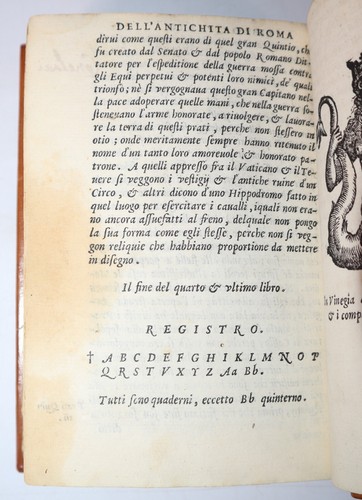 DELL'ANTICHITA DI ROMA
dirui come questi erano di quel gran Quintio, che
fu creato dal Senato & dal popolo Romano Dit-
tatore per l'espeditione della guerra mossa contra
gli Equi perpetui & potenti loro nimici, de' quali
trionfo; nè si vergognaua questo gran Capitano nel-
la pace adoperar quelle mani, che nella guerra so-
steneuano l'arme honorate, a riuolgere, & lauora-
re la terra di questi prati, perche non stessero in
otio; onde meritamente sempre hanno ritenuto il
nome d'un tanto loro amoreuole & honorato pa-
trone. A quelli appresso fra il Vaticano & il Te-
uere si veggono i vestigij & l'antiche ruine d'un
Circo, & altri dicono d'uno Hippodromo fatto in
quel luogo per esercitare i caualli, iquali non era-
no ancora assuefatti al freno, delquale non pongo
la sua forma come egli stesse, perche non si veg-
gon reliquie che habbiano proportione da mettere
in disegno.
Il fine del quarto & vltimo libro.
REGISTRO.
† A B C D E F G H I K L M N O P
Q R S T V X Y Z Aa Bb.
Tutti sono quaderni, eccetto Bb quinterno.
In Vinegia
& i comp